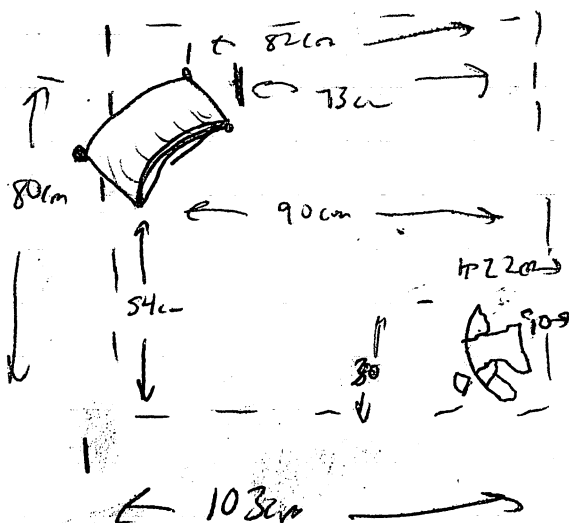 82cm
73cm
80cm
90cm
22cm
54cm
10
30
103cm